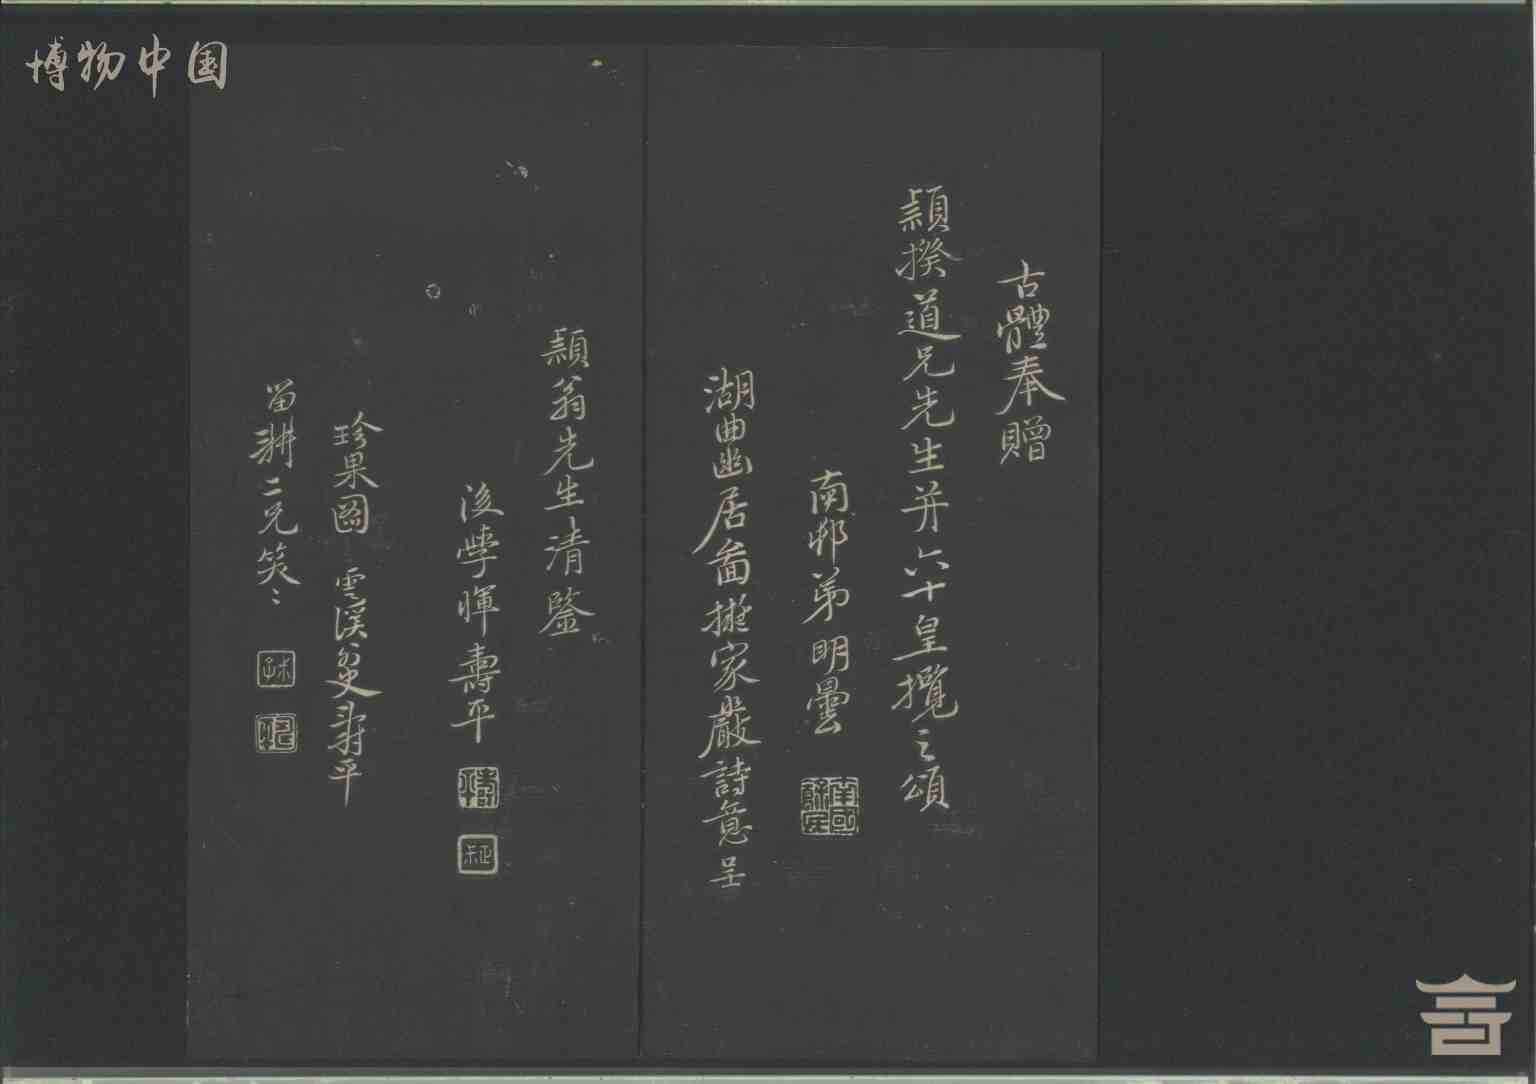 博物中国
古體奉贈
穎揆道兄先生并六十皇攬之頌
南邨弟明曇
湖曲幽居啚擬家嚴詩意呈
穎翁先生清鑒
後學暉壽平
珍果圖 雲溪外史壽平
留耕二兄笑〻